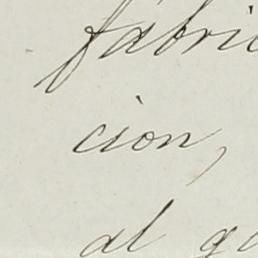 fabri
cion,
al g